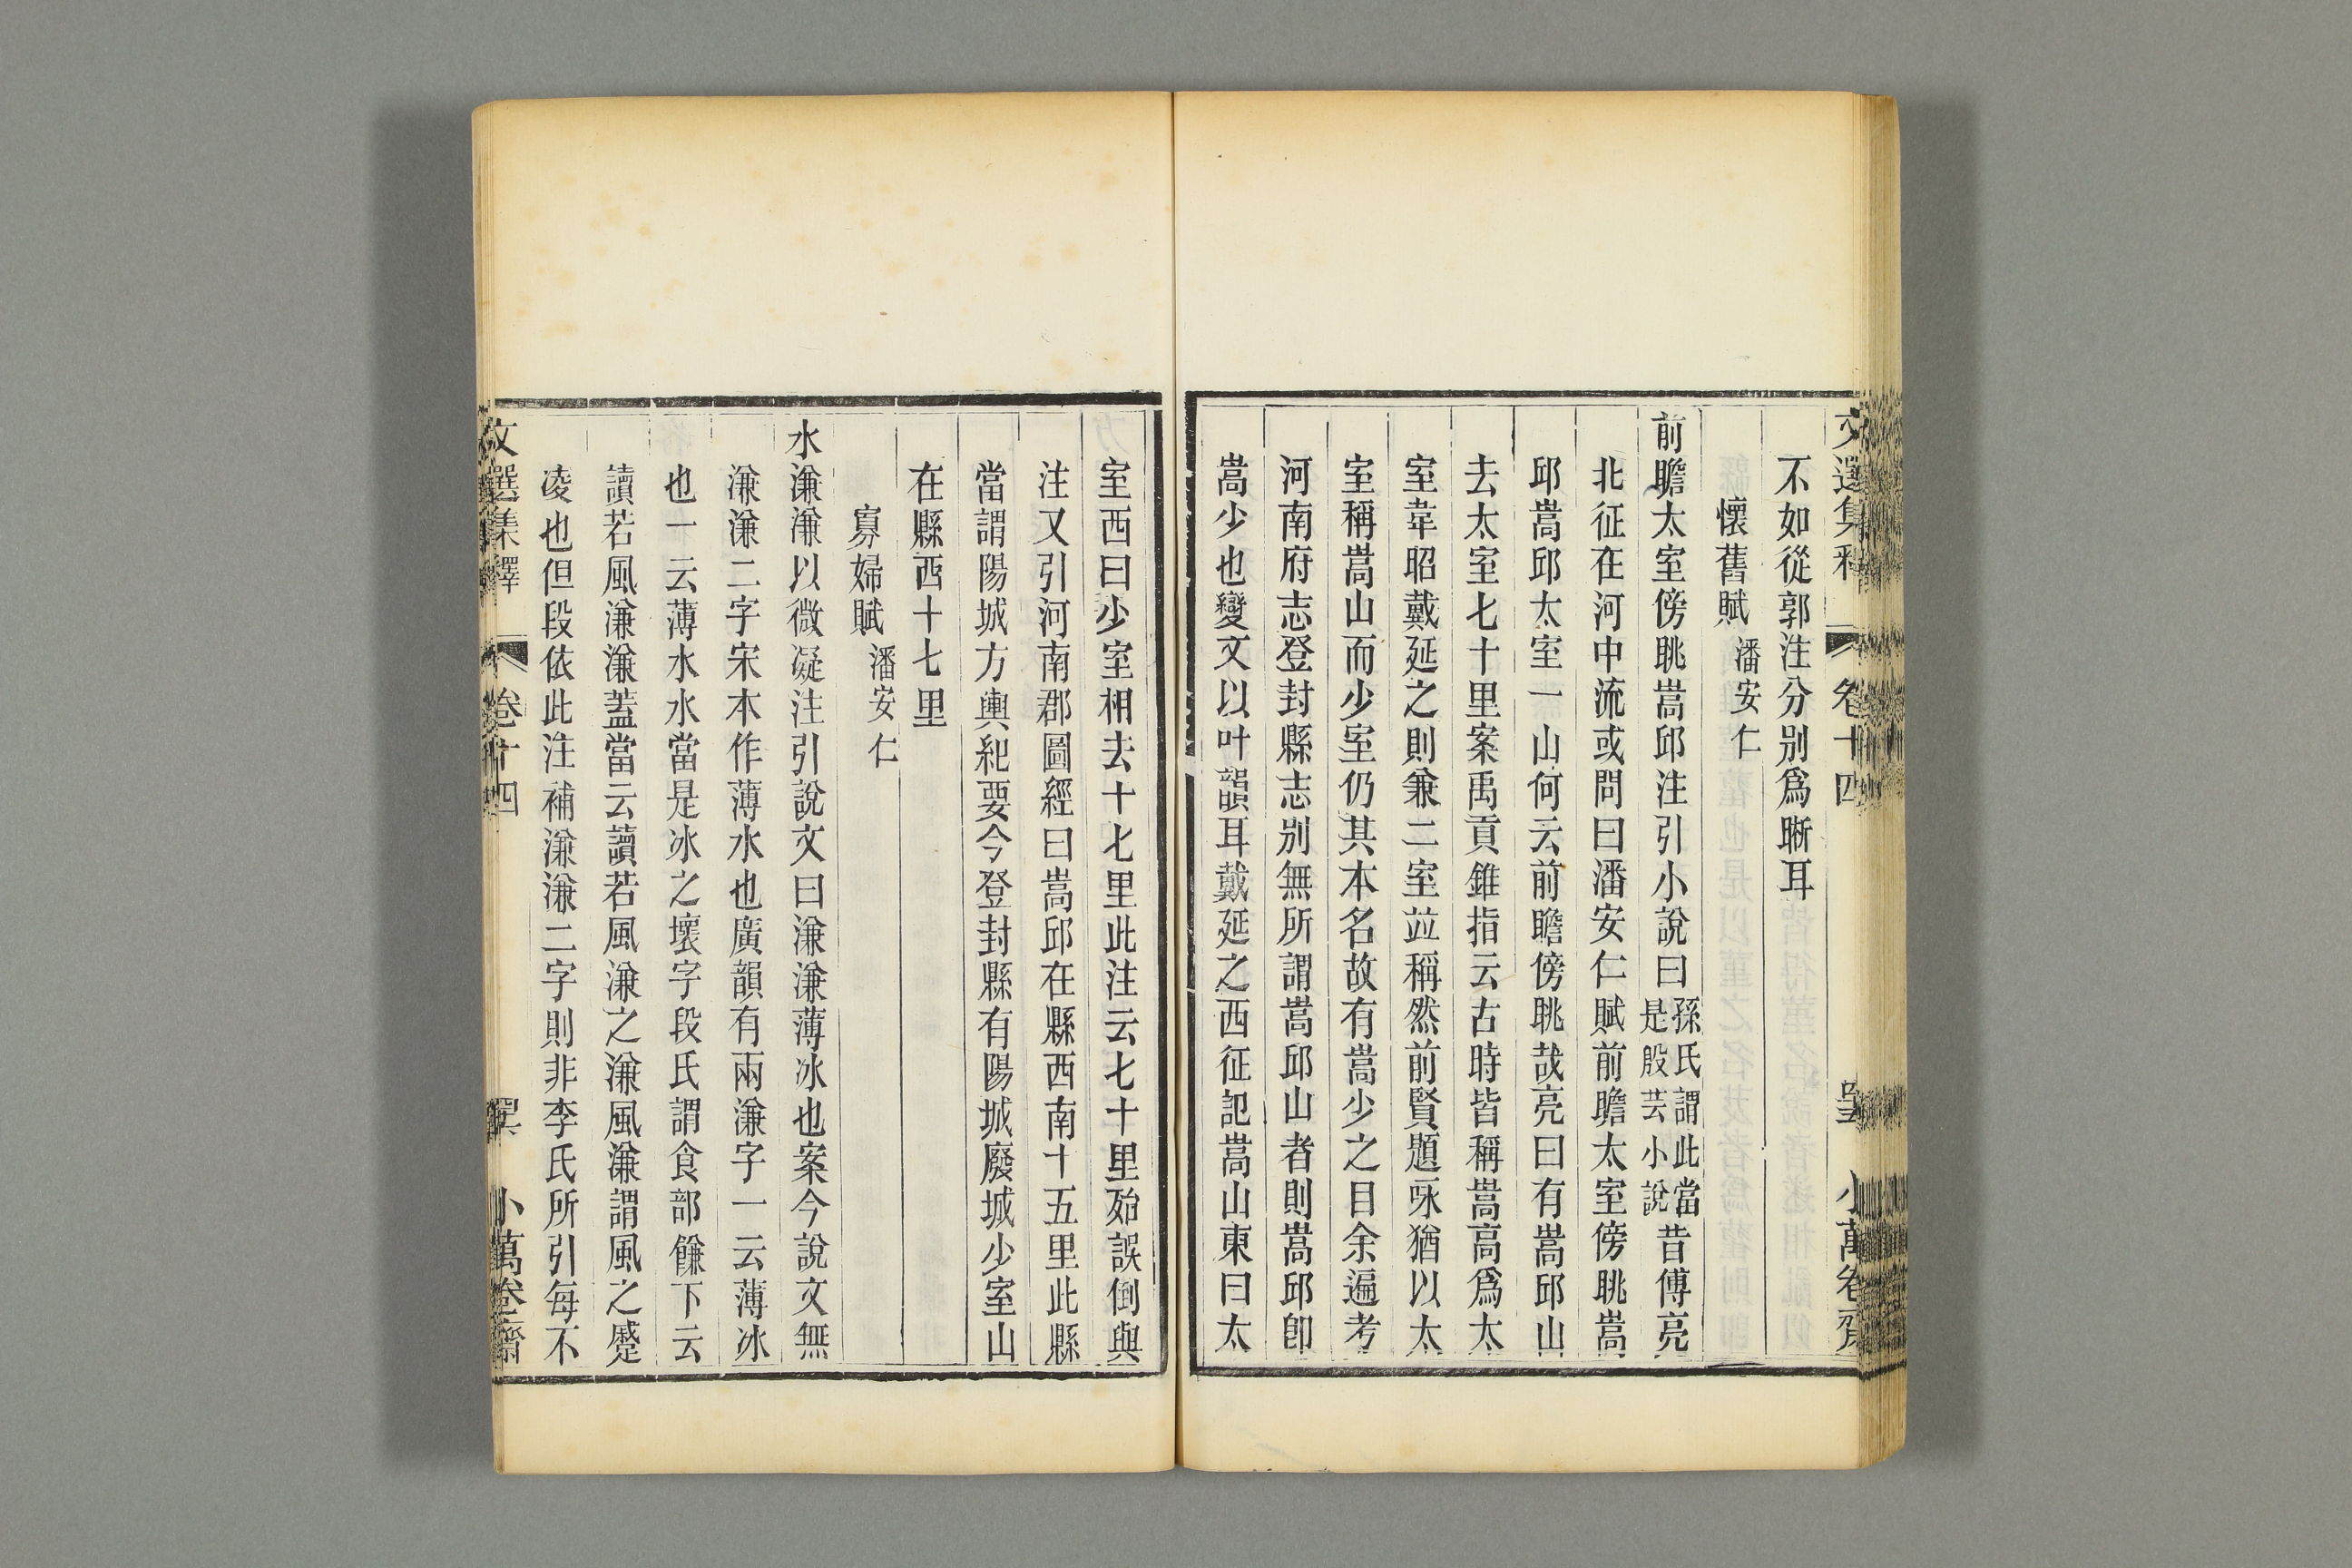 文選集釋 卷十四 小萬卷齋
不如從郭注分別爲晰耳
懷舊賦 潘安仁
前瞻太室傍眺嵩邱注引小說曰孫氏謂此當是殷芸小說昔傅亮
北征在河中流或問曰潘安仁賦前瞻太室傍眺嵩
邱嵩邱太室一山何云前瞻傍眺哉亮曰有嵩邱山
去太室七十里案禹貢錐指云古時皆稱嵩高爲太
室韋昭戴延之則兼二室竝稱然前賢題詠猶以太
室稱嵩山而少室仍其本名故有嵩少之目余遍考
河南府志登封縣志別無所謂嵩邱山者則嵩邱卽
嵩少也變文以叶韻耳戴延之西征記嵩山東曰太
室西曰少室相去十七里此注云七十里殆誤倒與
注又引河南郡圖經曰嵩邱在縣西南十五里此縣
當謂陽城方輿紀要今登封縣有陽城廢城少室山
在縣西十七里
寡婦賦 潘安仁
水溓溓以微凝注引說文曰溓溓薄冰也案今說文無
溓溓二字宋本作薄水也廣韻有兩溓字一云薄冰
也一云薄水水當是冰之壞字段氏謂食部䭑下云
讀若風溓溓蓋當云讀若風溓之溓風溓謂風之蹙
凌也但段依此注補溓溓二字則非李氏所引每不
文選集釋 卷十四 小萬卷齋